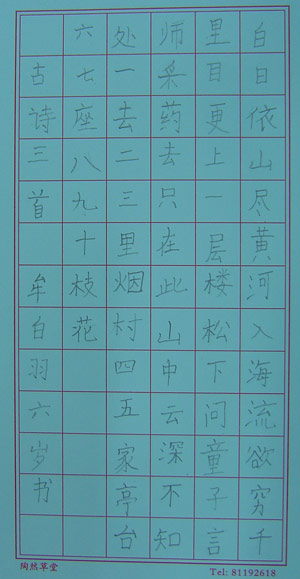 白日依山尽黄河入海流欲穷千
里目更上一层楼松下问童子言
师采药去只在此山中云深不知
处一去二三里烟村四五家亭台
六七座八九十枝花
古诗三首牟白羽六岁书
陶然草堂
Tel: 81192618